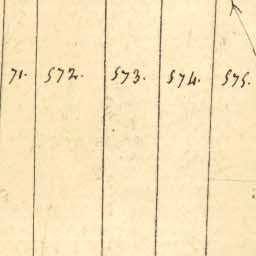 71. 572. 573. 574. 575.